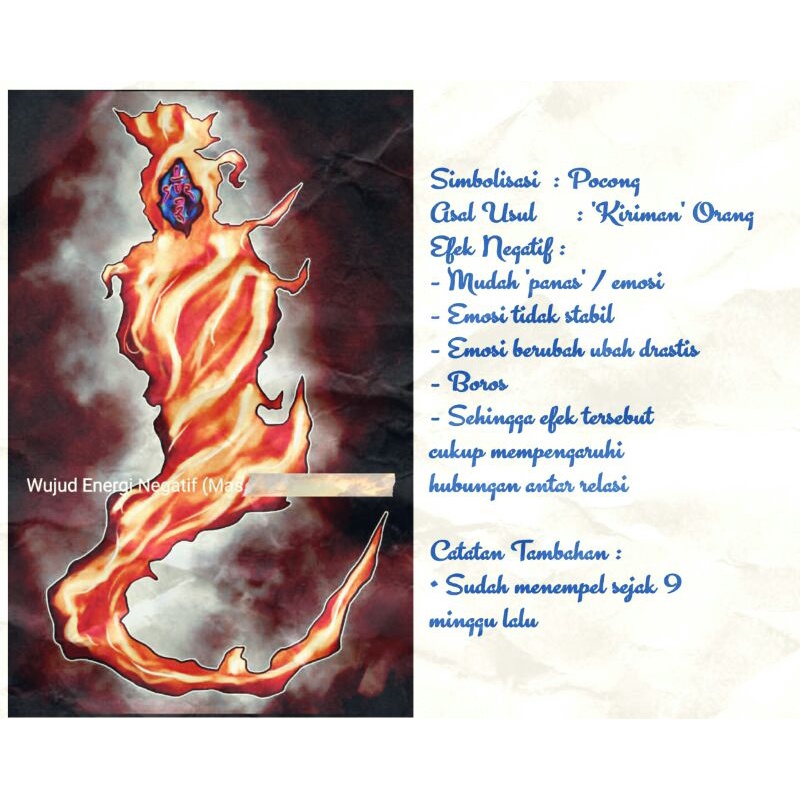 Wujud Energi Negatif (Mas
Simbolisasi : Pocong
Asal Usul : 'Kiriman' Orang
Efek Negatif :
- Mudah 'panas' / emosi
- Emosi tidak stabil
- Emosi berubah ubah drastis
- Boros
- Sehingga efek tersebut
cukup mempengaruhi
hubungan antar relasi
Catatan Tambahan :
• Sudah menempel sejak 9
minggu lalu